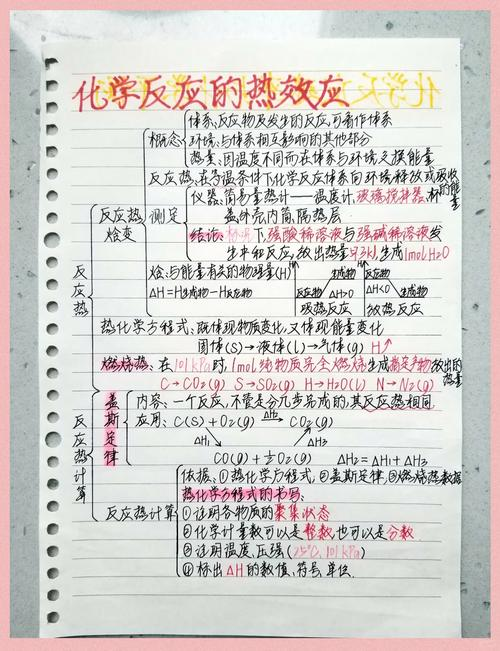 化学反应的热效应
体系:反应物及发生的反应,可看作体系
概念 环境:与体系相互影响的其他部分
热量:因温度不同而在体系与环境交换能量
反应热:在等温条件下化学反应体系向环境释放或吸收的能量
反应热 焓变
测定 仪器:简易量热计——温度计,玻璃搅拌器,杯
盖外壳内筒,隔热层
结论: 下强酸稀溶液与强碱稀溶液发
生中和反应,放出热量 kJ,生成1mol H₂O
反应热
焓:与能量有关的物理量(H)
ΔH=H生成物-H反应物
H 生成物 反应物 ΔH>0
吸热反应
H 反应物 生成物 ΔH<0
放热反应
热化学方程式:既体现物质变化,又体现能量变化
固体(s)→液体(l)→气体(g) H↑
燃烧热:在101kPa时,1mol纯物质完全燃烧生成指定产物放出的热量
C→CO₂(g) S→SO₂(g) H→H₂O(l) N→N₂(g)
反应热计算
盖斯定律
内容:一个反应,不管是分几步完成的,其反应热相同
应用:C(s)+O₂(g) ΔH₂ CO₂(g)
ΔH₁ ΔH₃
CO(g)+½O₂(g) ΔH₂=ΔH₁+ΔH₃
反应热计算
依据:①热化学方程式,②盖斯定律,③燃烧热数据
热化学方程式的书写:
①注明各物质的聚集状态
②化学计量数可以是整数也可以是分数
③注明温度,压强(25℃,101kPa)
④标出ΔH的数值,符号,单位.